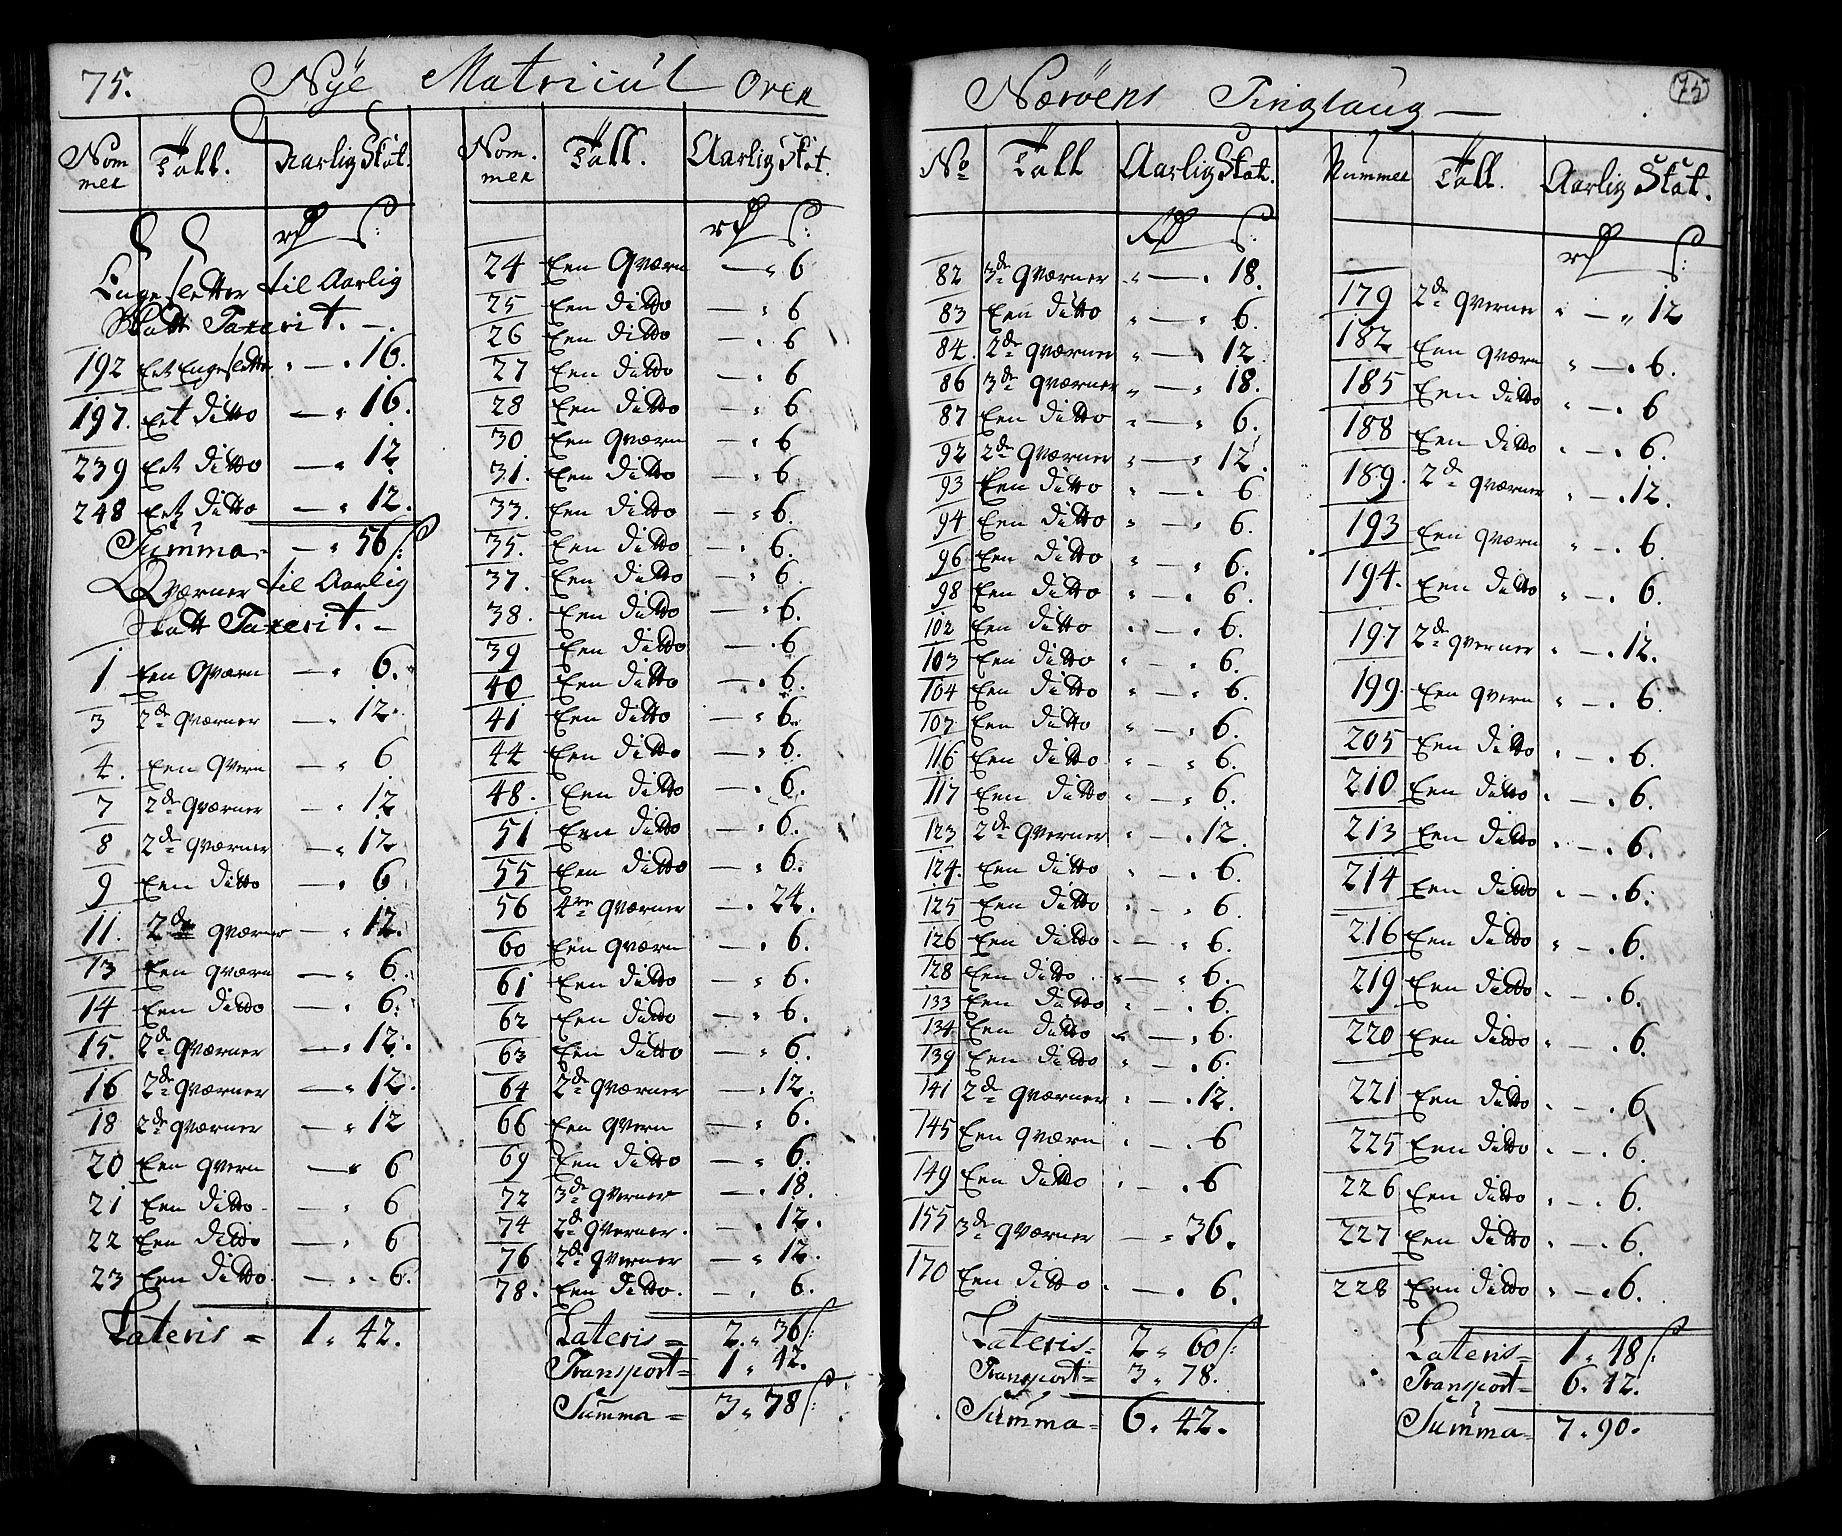 75. Nÿe Matricul Over Nærøens Tinglaug — 75
Nom mer Tall. Aarlig Skat.
rd ß:
Engesletter til Aarlig
Skatt Taxerit. —.
192 Eet Engeslette " — " 16.
197. Eet ditto — " 16.
239 Eet ditto — " 12
248 Eet ditto — " 12.
Summa — " 56 ß:
Qværner til Aarlig
Skatt Taxerit. —
1 Een Qværn — " 6.
3 2de qværner — " 12.
4. Een qvern — " 6
7 2de qværner — " 12
8 2de qværner — " 12
9 Een ditto — " 6
11. 2de qværner — " 12.
13 Een qværn — " 6.
14 Een ditto — " 6.
15. 2de qværner — " 12.
16 2de qværner — " 12.
18 2de qværner — " 12
20 Een qvern — " 6
21 Een ditto — " 6
22 Een ditto — " 6
23 Een ditto — " 6.
Lateris = 1 " 42.
Nom. mer Tall. Aarlig Skat.
rd ß:
24 Een Qværn — " 6
25 Een ditto — " 6
26 Een ditto — " 6
27 Een ditto — " 6
28 Een ditto — " 6
30 Een qværn — " 6
31. Een ditto — " 6
33. Een ditto — " 6.
35. Een ditto — " 6.
37. Een ditto — " 6.
38. Een ditto — " 6.
39 Een ditto — " 6.
40 Een ditto — " 6.
41 Een ditto — " 6.
44 Een ditto — " 6.
48. Een ditto — " 6.
51 Een ditto — " 6.
55 Een ditto — " 6.
56 4re qværner — " 24.
60 Een qværn — " 6.
61 Een ditto — " 6.
62 Een ditto — " 6.
63 Een ditto — " 6.
64 2de qværner — " 12.
66 Een qvern — " 6.
69 Een ditto — " 6.
72 3de qverner — " 18.
74 2de qverner. — " 12.
76 2de qverner — " 12.
78. Een ditto. — " 6.
Lateris = 2 " 36 ß:
Transport = 1 " 42.
Summa = 3 " 78 ß:
No Tall Aarlig Skat.
Rd ß:
82 3de qværner " — " 18.
83 Een ditto " — " 6.
84. 2de qværner " — " 12.
86 3de qværner " — " 18.
87 Een ditto " — " 6.
92 2de qværner " — " 12.
93 Een ditto " — " 6
94 Een ditto " — " 6.
96 Een ditto " — " 6.
98 Een ditto " — " 6.
102 Een ditto " — " 6.
103 Een ditto " — " 6.
104 Een ditto " — " 6.
107 Een ditto " — " 6.
116 Een ditto " — " 6.
117 Een ditto " — " 6.
123 2de qverner " — " 12.
124. Een ditto " — " 6.
125 Een ditto " — " 6.
126 Een ditto " — " 6.
128 Een ditto " — " 6.
133 Een ditto " — " 6.
134 Een ditto " — " 6.
139 Een ditto " — " 6.
141 2de qværner " — " 12.
145 Een qværn " — " 6
149 Een ditto " — " 6
155 3de qværner — " 36.
170 Een ditto " — " 6.
Lateris = 2 " 60 ß:
Transport = 3 " 78.
Summa = 6 " 42.
Nummer Tall. Aarlig Skat.
rd ß:
179 2de qverner " — " 12
182 Een qværn " — " 6.
185 Een ditto " — " 6
188 Een ditto " — " 6.
189. 2de qværner " — " 12.
193 Een qværn " — " 6.
194. Een ditto " — " 6.
197 2de qverner " — " 12.
199. Een qvern " — " 6.
205 Een ditto " — " 6.
210 Een ditto " — " 6.
213 Een ditto " — " 6.
214 Een ditto " — " 6.
216 Een ditto " — " 6.
219 Een ditto " — " 6.
220 Een ditto " — " 6.
221 Een ditto " — " 6
225 Een ditto " — " 6.
226 Een ditto " — " 6.
227 Een ditto " — " 6.
228 Een ditto " — " 6.
Lateris = 1 " 48 ß:
Transport = 6 " 42.
Summa = 7 " 90.